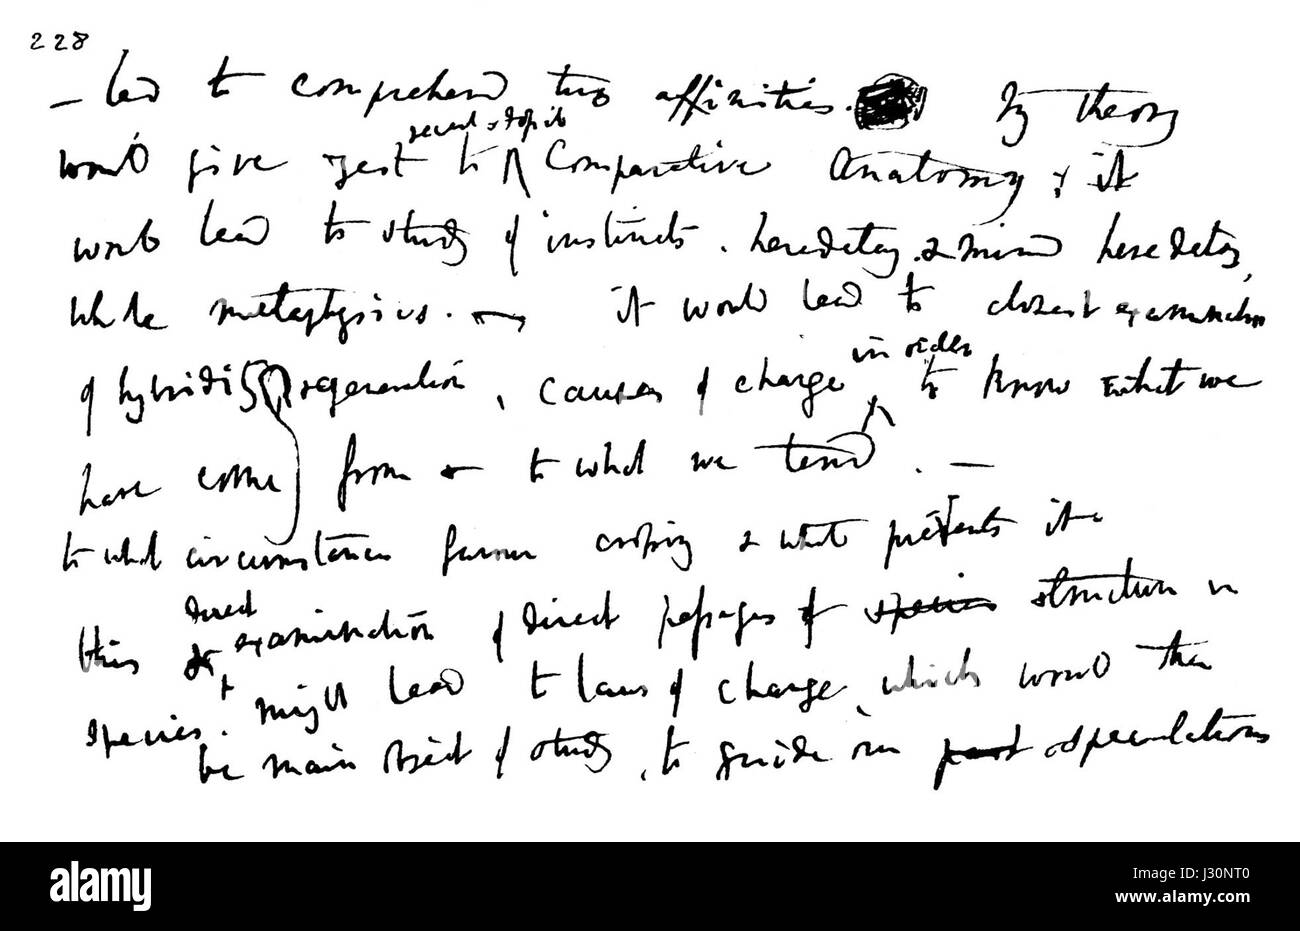 228
– led to comprehend true affinities. My theory
would give zest to recent & fossil Comparative Anatomy, & it
would lead to study of instincts, heredetary. & mind heredetary,
whole metaphysics. — it would lead to closest examination
of hybridity regeneration, causes of change in order to know what we
have come from & to what we tend. —
to what circumstances favour crossing & what prevents it—
this & direct examination of direct passages of species structure in
species, might lead to laws of change, which would then
be main object of study, to guide our past speculations
alamy
a
alamy
Image ID: J30NT0
www.alamy.com